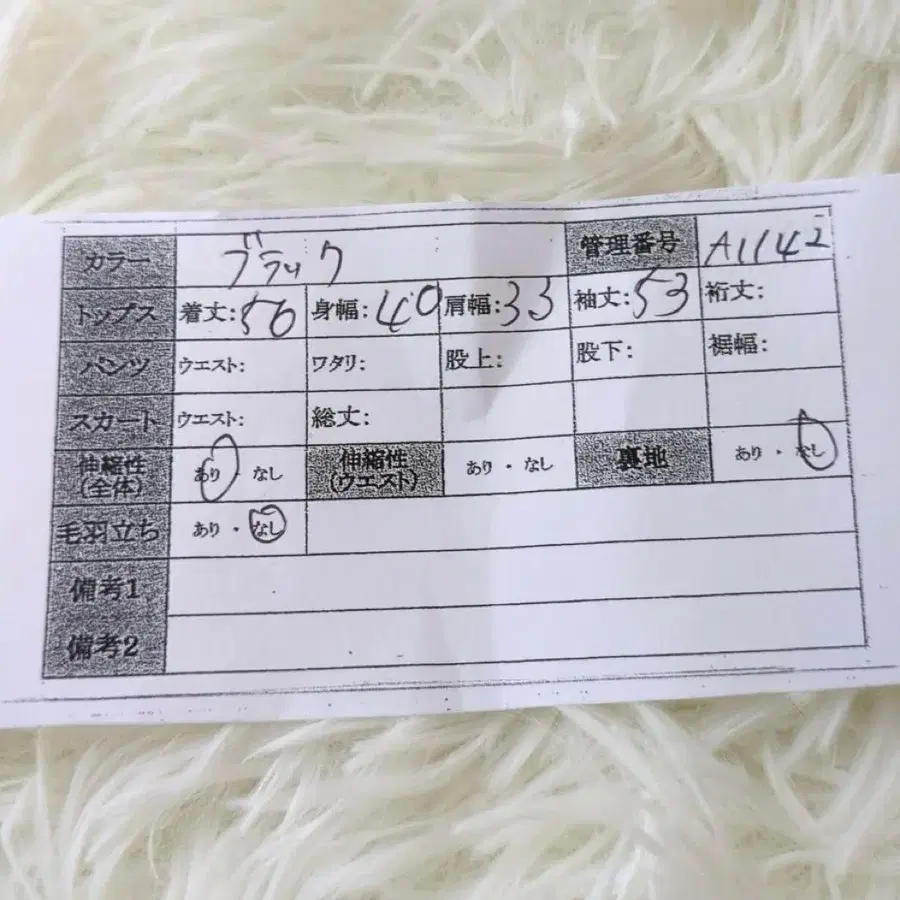 カラー ブラック 管理番号 A1142
トップス 着丈:56 身幅:40 肩幅:33 袖丈:53 裄丈:
パンツ ウエスト: ワタリ: 股上: 股下: 裾幅:
スカート ウエスト: 総丈:
伸縮性 あり・なし 伸縮性 あり・なし 裏地 あり・なし
(全体) (ウエスト)
毛羽立ち あり・なし
備考1
備考2